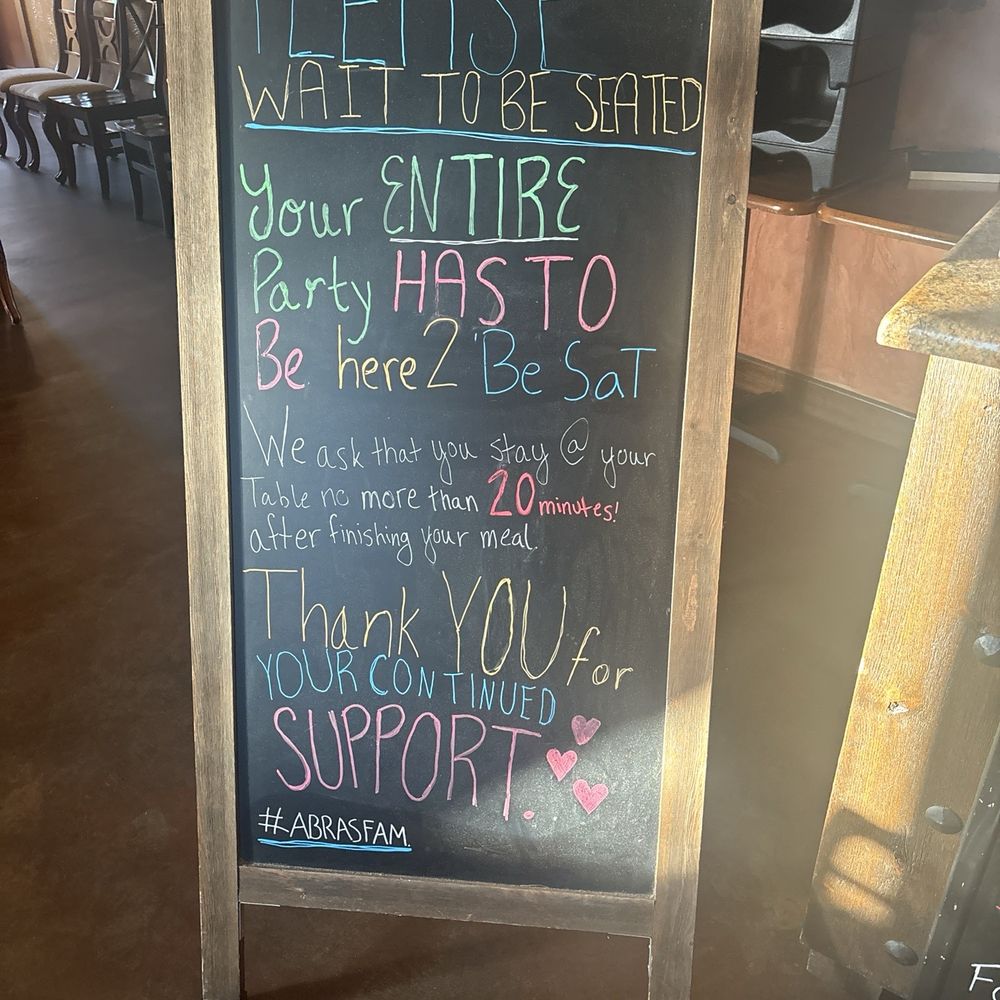 PLEASE
WAIT TO BE SEATED
Your ENTIRE
Party HAS TO
Be here 2 Be SaT
We ask that you stay @ your
Table no more than 20 minutes!
after finishing your meal.
Thank YOU for
YOUR CONTINUED
SUPPORT.
#ABRASFAM.